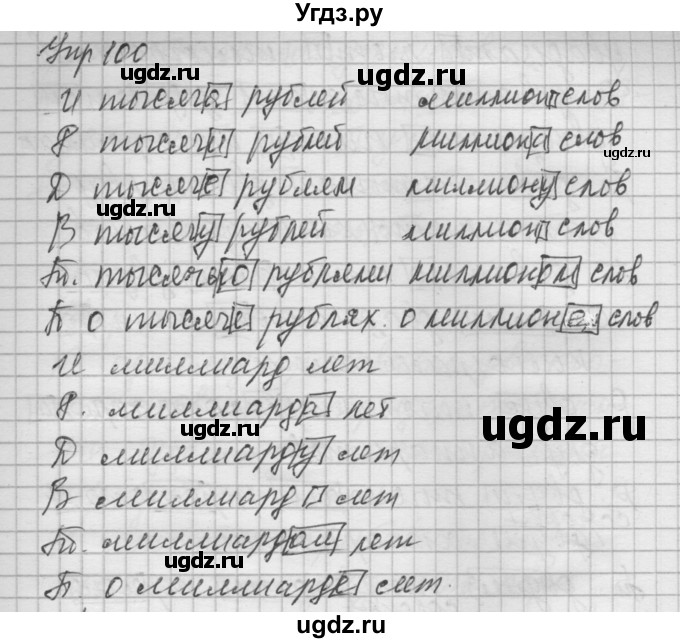 Угдз.ру
Упр 100
ugdz.ru ugdz.ru
И тысяча рублей миллион слов
Р тысячи рублей миллиона слов
ugdz.ru ugdz.ru
Д тысяче рублям миллиону слов
ugdz.ru
В тысячу рублей миллион слов
Тв. тысячью рублями миллионом слов
ugdz.ru ugdz.ru
П о тысяче рублях. о миллионе слов
И миллиард лет
Р. миллиарда лет
ugdz.ru ugdz.ru
Д миллиарду лет
В миллиард лет
Тв. миллиардом лет
ugdz.ru
П о миллиарде лет.
ugdz.ru
ugdz.ru